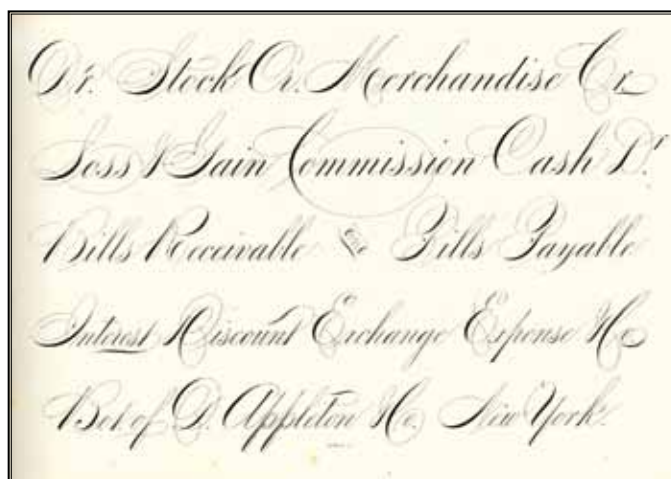 Dr. Stock Cr. Merchandise Cr
Loss & Gain Commission Cash Dr.
Bills Receivable Bills Payable
Interest Discount Exchange Expense & Co
Bot of D. Appleton & Co. New York.